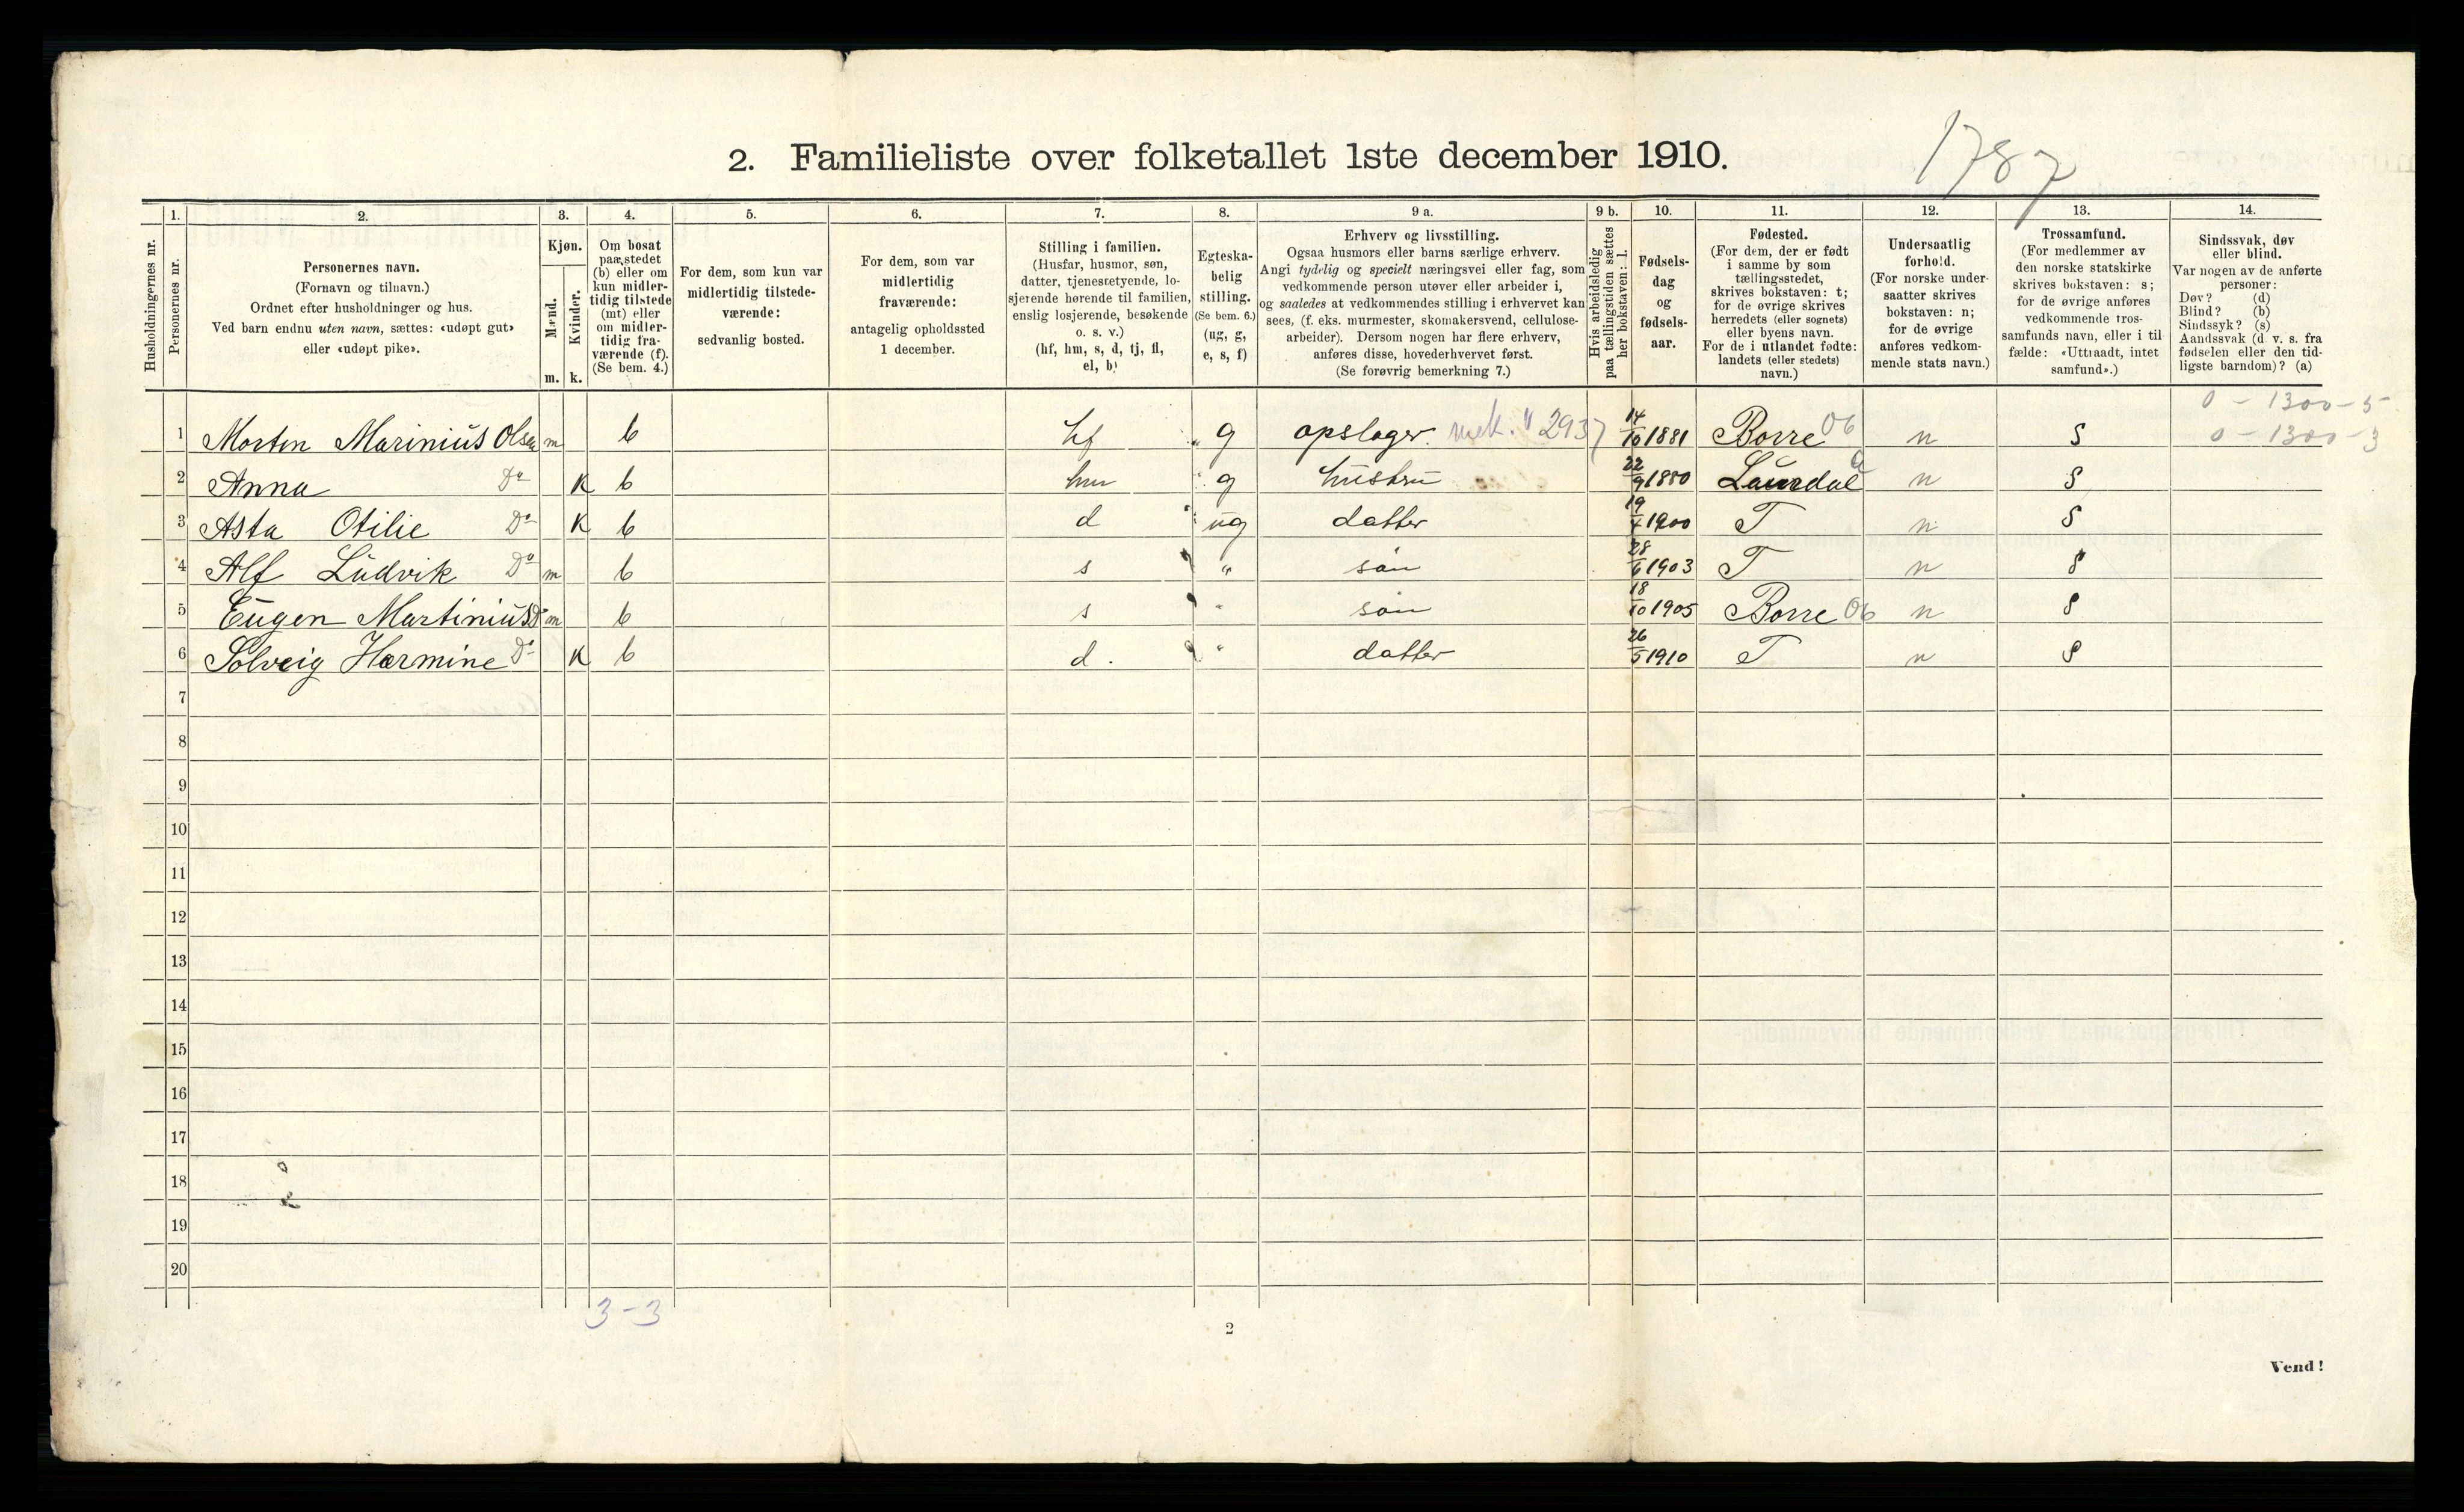 2. Familieliste over folketallet 1ste december 1910.
1787
1. 2. 3. 4. 5. 6. 7. 8. 9 a. 9 b. 10. 11. 12. 13. 14.
Husholdningernes nr.
Personernes nr.
Personernes navn.
(Fornavn og tilnavn.)
Ordnet efter husholdninger og hus.
Ved barn endnu uten navn, sættes: «udøpt gut»
eller «udøpt pike».
Kjøn.
Mænd.
Kvinder.
m. k.
Om bosat
paa stedet
(b) eller om
kun midler-
tidig tilstede
(mt) eller
om midler-
tidig fra-
værende (f).
(Se bem. 4.)
For dem, som kun var
midlertidig tilstede-
værende:
sedvanlig bosted.
For dem, som var
midlertidig
fraværende:
antagelig opholdssted
1 december.
Stilling i familien.
(Husfar, husmor, søn,
datter, tjenestetyende, lo-
sjerende hørende til familien,
enslig losjerende, besøkende
o. s. v.)
(hf, hm, s, d, tj, fl,
el, b)
Egteska-
belig
stilling.
(Se bem. 6.)
(ug, g,
e, s, f)
Erhverv og livsstilling.
Ogsaa husmors eller barns særlige erhverv.
Angi tydelig og specielt næringsvei eller fag, som
vedkommende person utøver eller arbeider i,
og saaledes at vedkommendes stilling i erhvervet kan
sees, (f. eks. murmester, skomakersvend, cellulose-
arbeider). Dersom nogen har flere erhverv,
anføres disse, hovederhvervet først.
(Se forøvrig bemerkning 7.)
Hvis arbeidsledig
paa tællingstiden sættes
her bokstaven: l.
Fødsels-
dag
og
fødsels-
aar.
Fødested.
(For dem, der er født
i samme by som
tællingsstedet,
skrives bokstaven: t;
for de øvrige skrives
herredets (eller sognets)
eller byens navn.
For de i utlandet fødte:
landets (eller stedets)
navn.)
Undersaatlig
forhold.
(For norske under-
saatter skrives
bokstaven: n;
for de øvrige
anføres vedkom-
mende stats navn.)
Trossamfund.
(For medlemmer av
den norske statskirke
skrives bokstaven: s;
for de øvrige anføres
vedkommende tros-
samfunds navn, eller i til
fælde: «Uttraadt, intet
samfund».)
Sindssvak, døv
eller blind.
Var nogen av de anførte
personer:
Døv? (d)
Blind? (b)
Sindssyk? (s)
Aandssvak (d v. s. fra
fødselen eller den tid-
ligste barndom)? (a)
0 - 1300 - 5
1 Morten Marinius Olsen m b hf g opslager mek. " 2937 14/10 1881 Borre 06 n S 0 - 1300 - 3
2 Anna Do K b hm g hustru 22/9 1880 Laurdal n S
3 Asta Otilie Do K b d ug datter 19/4 1900 T n S
4 Alf Ludvik Do m b s " søn 28/6 1903 T n S
5 Eugen Martinius Do m b s " søn 18/10 1905 Borre 06 n S
6 Solveig Harmine Do K b d. " datter 26/5 1910 T n S
7
8
9
10
11
12
13
14
15
16
17
18
19
20
3-3
2
Vend!